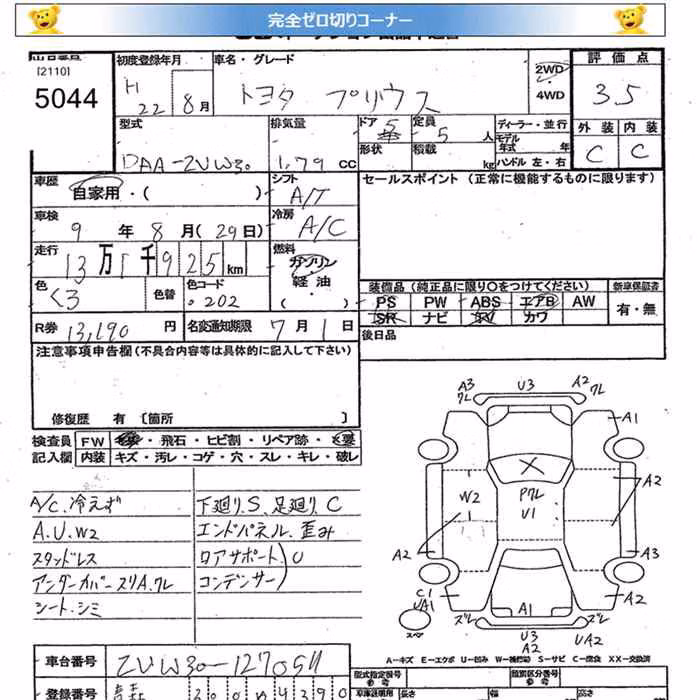 完全ゼロ切りコーナー
[2110]
5044
初度登録年月
H 22年 8月
車名・グレード
トヨタ プリウス
2WD
4WD
評価点
3.5
外装 内装
C C
型式
DAA-ZVW30
排気量
1.79 CC
ドア 5
形状
定員 5人
積載 kg
ディーラー・並行
モデル年式 年
ハンドル 左・右
車歴
自家用・( )
シフト
A/T
セールスポイント (正常に機能するものに限ります)
車検
9年 8月(29日)
冷房
A/C
走行
13万1千925km
燃料
ガソリン
軽油
( )
色
くろ
色替
色コード
202
装備品(純正品に限り○をつけてください)
新車保証書
PS PW ABS エアB AW
SR ナビ カワ
有・無
R券 13,190円
名変通知期限 7月1日
後日品
注意事項申告欄(不具合内容等は具体的に記入して下さい)
修復歴 有 [箇所 ]
検査員記入欄
FW ・飛石・ヒビ割・リペア跡・×要
内装 キズ・汚レ・コゲ・穴・スレ・キレ・破レ
A/C.冷えず
A.U.W2
スタッドレス
アンダーカバースリA.ワレ
シート.シミ
下廻り.S.足廻り.C
エンドパネル.歪み
ロアサポート)U
コンデンサー)
A3 ワレ U3 A2 ワレ
A1
W2
Pワレ
U1
A2
A2
A3
C1
UA1
ズレ
A1
ズレ
A2
スペア
U3
A2
UA2
A-キズ E-エクボ U-凹み W-補修跡 S-サビ C-腐食 XX-交換済
車台番号
ZVW30-1270511
登録番号
青森 300 め 4390
型式指定番号
類別区分番号
参考
車庫証明用
長さ
幅
高さ